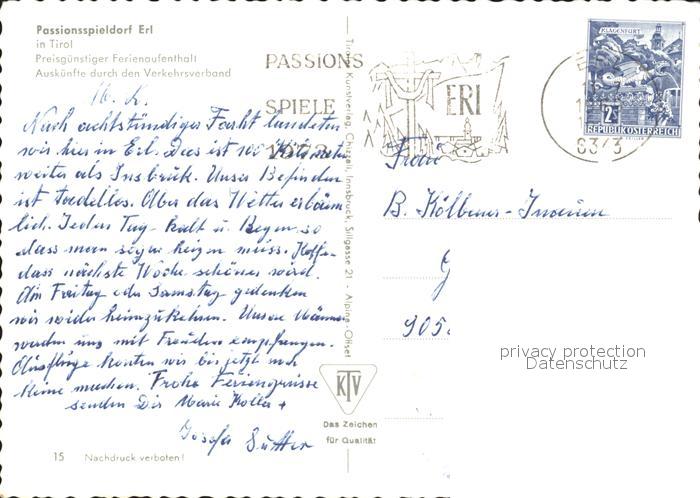 Passionsspieldorf Erl
in Tirol
Preisgünstiger Ferienaufenthalt
Auskünfte durch den Verkehrsverband
M. L.
Nach achtstündiger Farht landeten
wir hier in Erl. Dies ist 100 Kilometer
weiter als Insbruk. Unser Befinden
ist tadellos. Aber das Wetter erbärm-
lich. Jeden Tag kalt u. Regen, so
dass man sogar heizen muss. Hoffe
dass nächste Woche schöner wird.
Am Freitag oder Samstag gedenken
wir wieder heimzukehren. Unsere Männer
werden uns mit Freuden empfangen.
Ausflüge konten wir bis jetzt noch
keine machen. Frohe Feriengrüsse
senden Dir Marie Koller +
Josefa Sutter
15 Nachdruck verboten!
Tiroler Kunstverlag Chizzali, Innsbruck, Sillgasse 21 - Alpina-Offset
KTV
Das Zeichen
für Qualität
PASSIONS
SPIELE
1973
ERL
6343
KLAGENFURT
2
REPUBLIK ÖSTERREICH
Frau
B. Kölbener-
G
905
privacy protection
Datenschutz